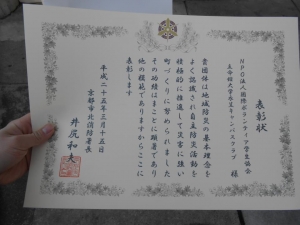 表彰状
NPO法人国際ボランティア学生協会
立命館大学衣笠キャンパスクラブ 様
貴団体は地域防災の基本理念を
よく認識され自主防災活動を
積極的に推進して災害に強い
町づくりに努められました
その功績はまことに顕著であり
他の模範でありますからここに
表彰します
平成二十五年三月十五日
京都市北消防署長
井尻和夫